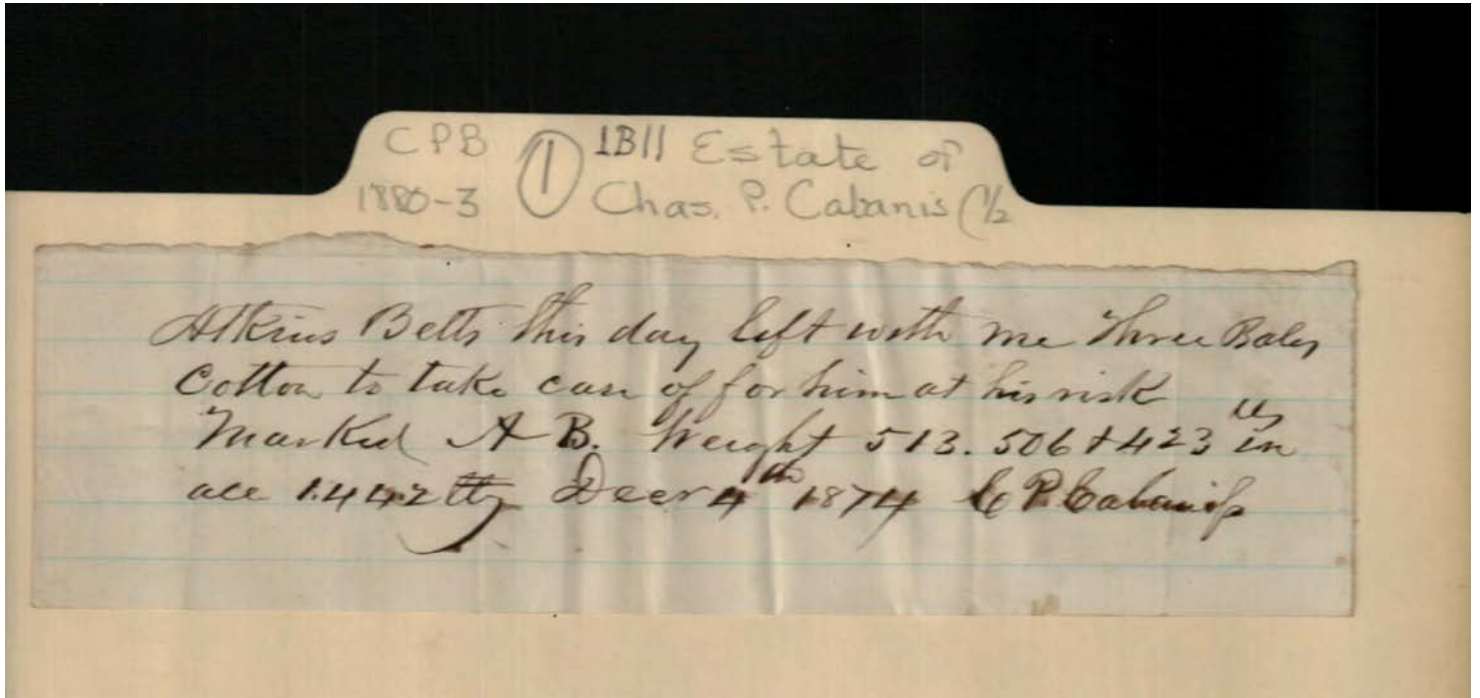 CPB ① 1B11 Estate of
1880-3 Chas. P. Cabanis (1/2
Atkins Betts this day left with me Three Bales
Cotton to take care of for him at his risk
Marked A B. Weight 513. 506 & 423 lbs in
all 1.442 lbs Decr 4th 1874 C P. Cabaniss